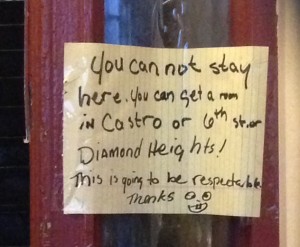 You can not stay
here. You can get a room
in Castro or 6th st. or
Diamond Heights!
This is going to be
Thanks